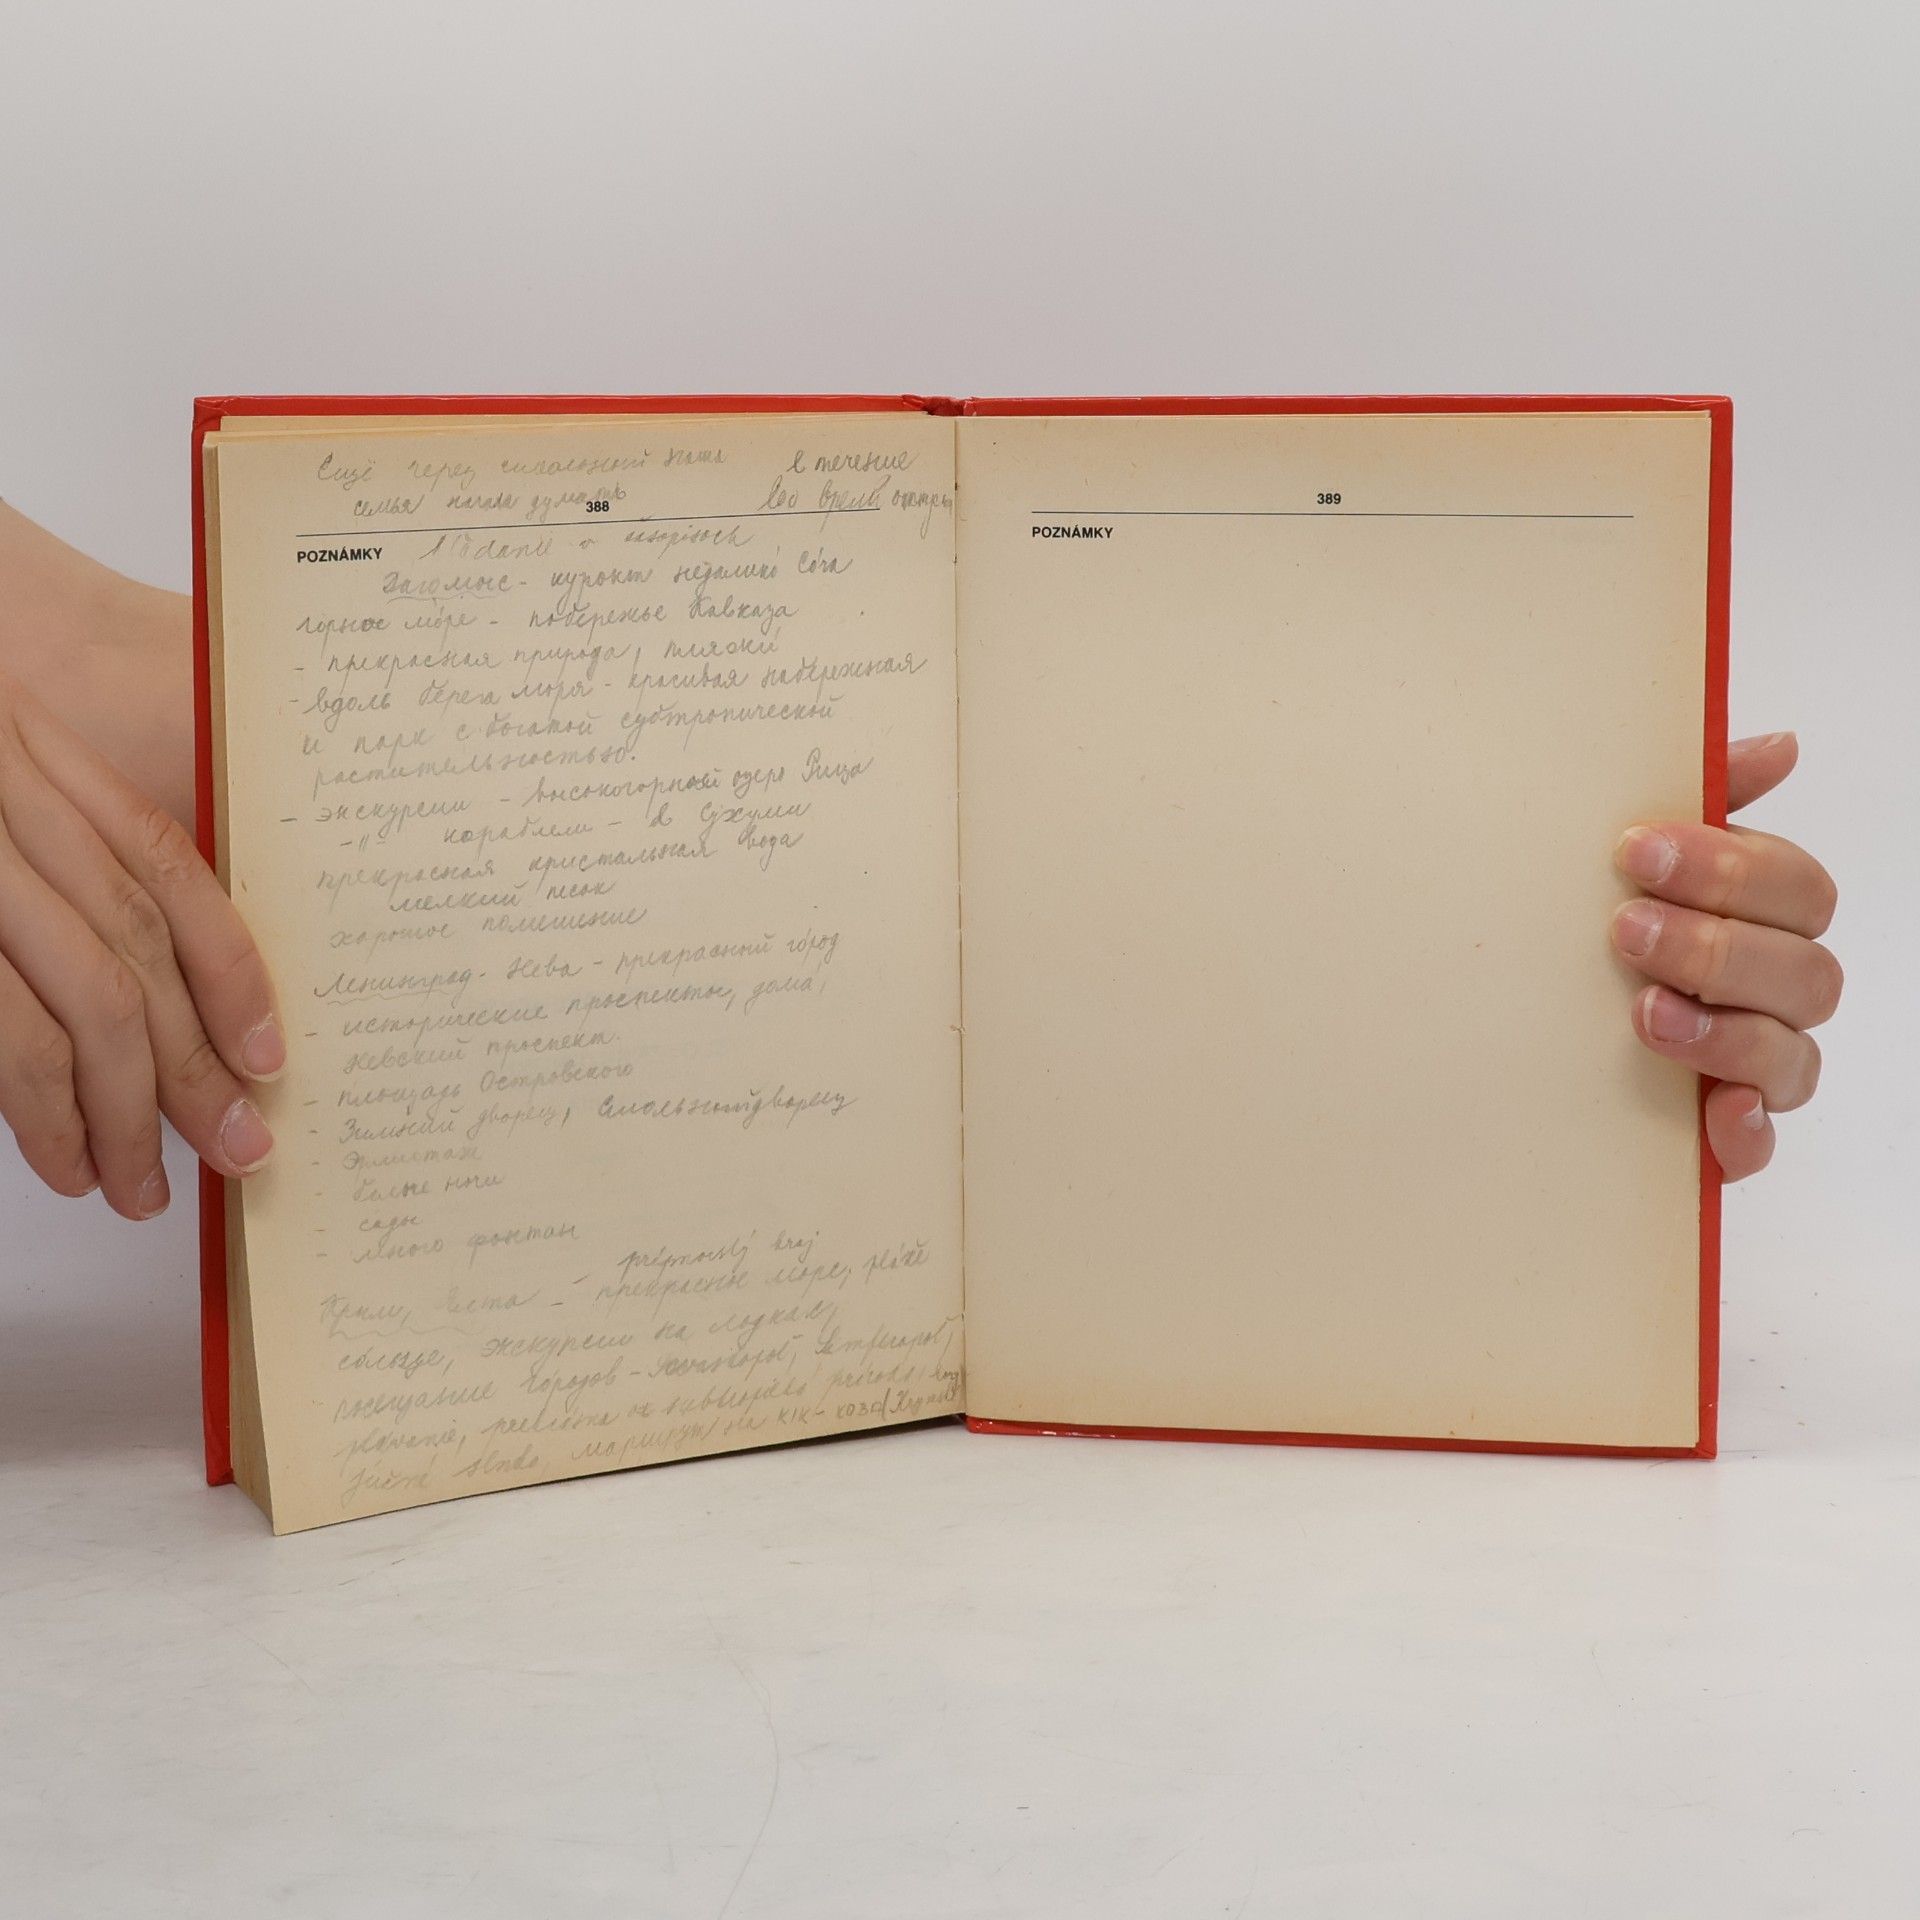 Ещё через
в течение
семья начала думать
388
POZNÁMKY
hľadanie v časopisoch
Дагомыс - курокт недалико Соча
горное море - побережье Кавказа
- прекрасная природа, пляжи
- вдоль берега моря - красивая набережная
и парк с богатой субтропической
растительностью.
- экскурсии - высокогорной озеро Рица
-"- кораблем - в Сухуми
прекрасная кристальная вода
мелкий песок
хорошое помещение
Ленинград - Нева - прекрасный город
- исторические проспекты, дома,
Невский проспект.
- площадь Островского
- Зимний дворец, Смольныйдворец
- Эрмитаж
- белые ночи
- сады
- много фонтан
prímorský kraj
Крым, Ялта - прекрасные море, pláže
сольнце, экскурсии на лодках,
посещание городов - Sevastopol, Simferopol,
plávanie, príroda,
južné slnko, маршрут на
389
POZNÁMKY